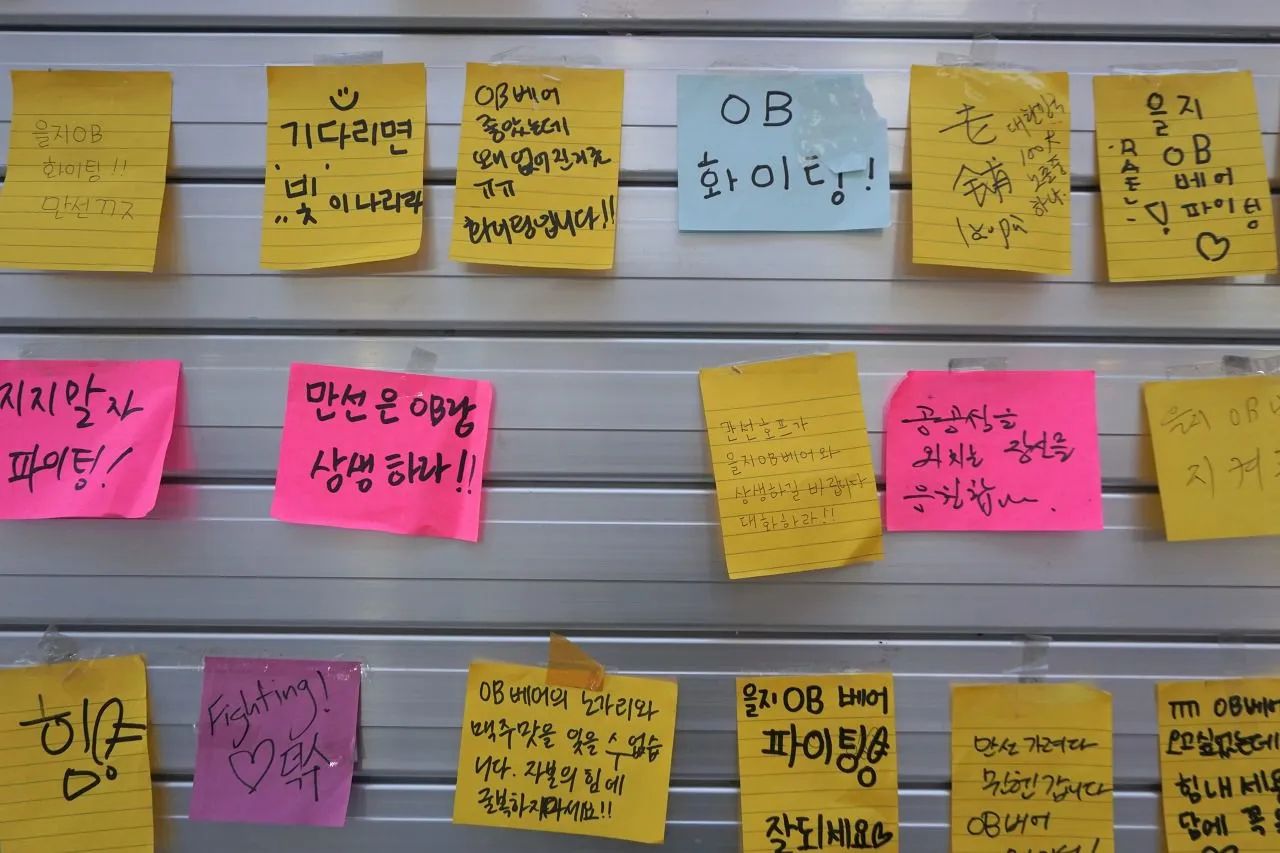 을지OB
화이팅!!
만선 ㄲㅈ
기다리면
빛이 나리라
OB베어
좋았는데
왜 없어진거죠
ㅠㅠ
화이팅입니다!!
OB
화이팅!
老
鋪
lǎo pù
대한민국
100大
노포중
하나.
을지
OB
베어
파이팅
♡
지지말자
파이팅!
만선은 OB랑
상생하라!!
만선호프가
을지OB베어와
상생하길 바랍니다
대화하라!!
공공식을
외치는
응원합
을지 OB
지켜
힘
Fighting!
♡
OB 베어의 노가리와
맥주맛을 잊을 수 없습
니다. 자본의 힘에
굴복하지마세요!!
을지OB 베어
파이팅
잘되세요
만선 가려다
OB베어
ㅠㅠ OB베어
오고싶었는데
힘내세요
담에 꼭